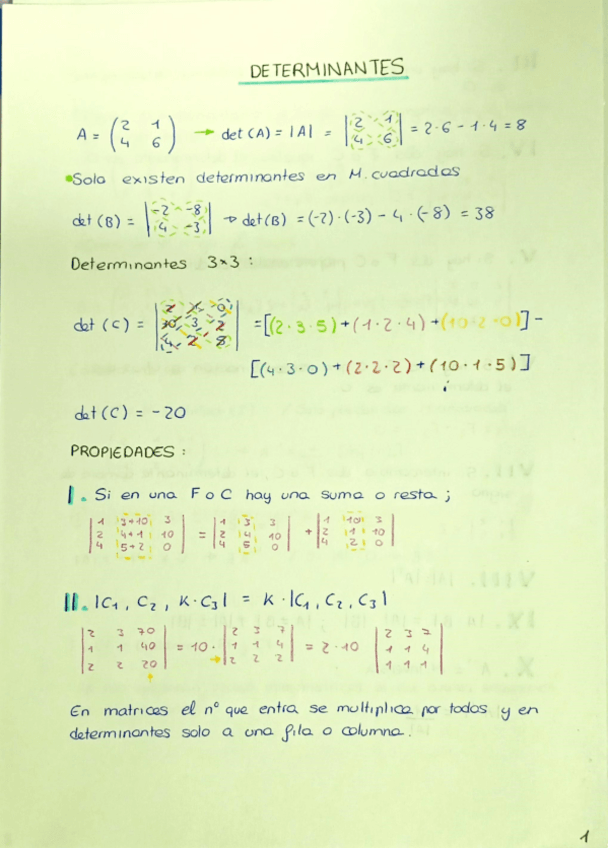 DETERMINANTES
A = (2 1 / 4 6) → det (A) = |A| = |2 1 / 4 6| = 2·6 - 1·4 = 8
•Solo existen determinantes en M. cuadradas
det (B) = |-2 -8 / 4 -3| → det(B) = (-2)·(-3) - 4·(-8) = 38
Determinantes 3×3 :
det (C) = |2 1 0 / 10 3 2 / 4 2 5| = [(2·3·5)+(1·2·4)+(10·2·0)] -
[(4·3·0)+(2·2·2)+(10·1·5)]
det (C) = -20
PROPIEDADES :
I. Si en una F o C hay una suma o resta ;
|1 3+10 3 / 2 4+1 10 / 4 5+2 0| = |1 3 3 / 2 4 10 / 4 5 0| + |1 10 3 / 2 1 10 / 4 2 0|
II. |C₁, C₂, K·C₃| = K·|C₁, C₂, C₃|
|2 3 70 / 1 1 40 / 2 2 20| = 10·|2 3 7 / 1 1 4 / 2 2 2| = 2·10 |2 3 7 / 1 1 4 / 1 1 1|
En matrices el nº que entra se multiplica por todos y en
determinantes solo a una fila o columna.
1